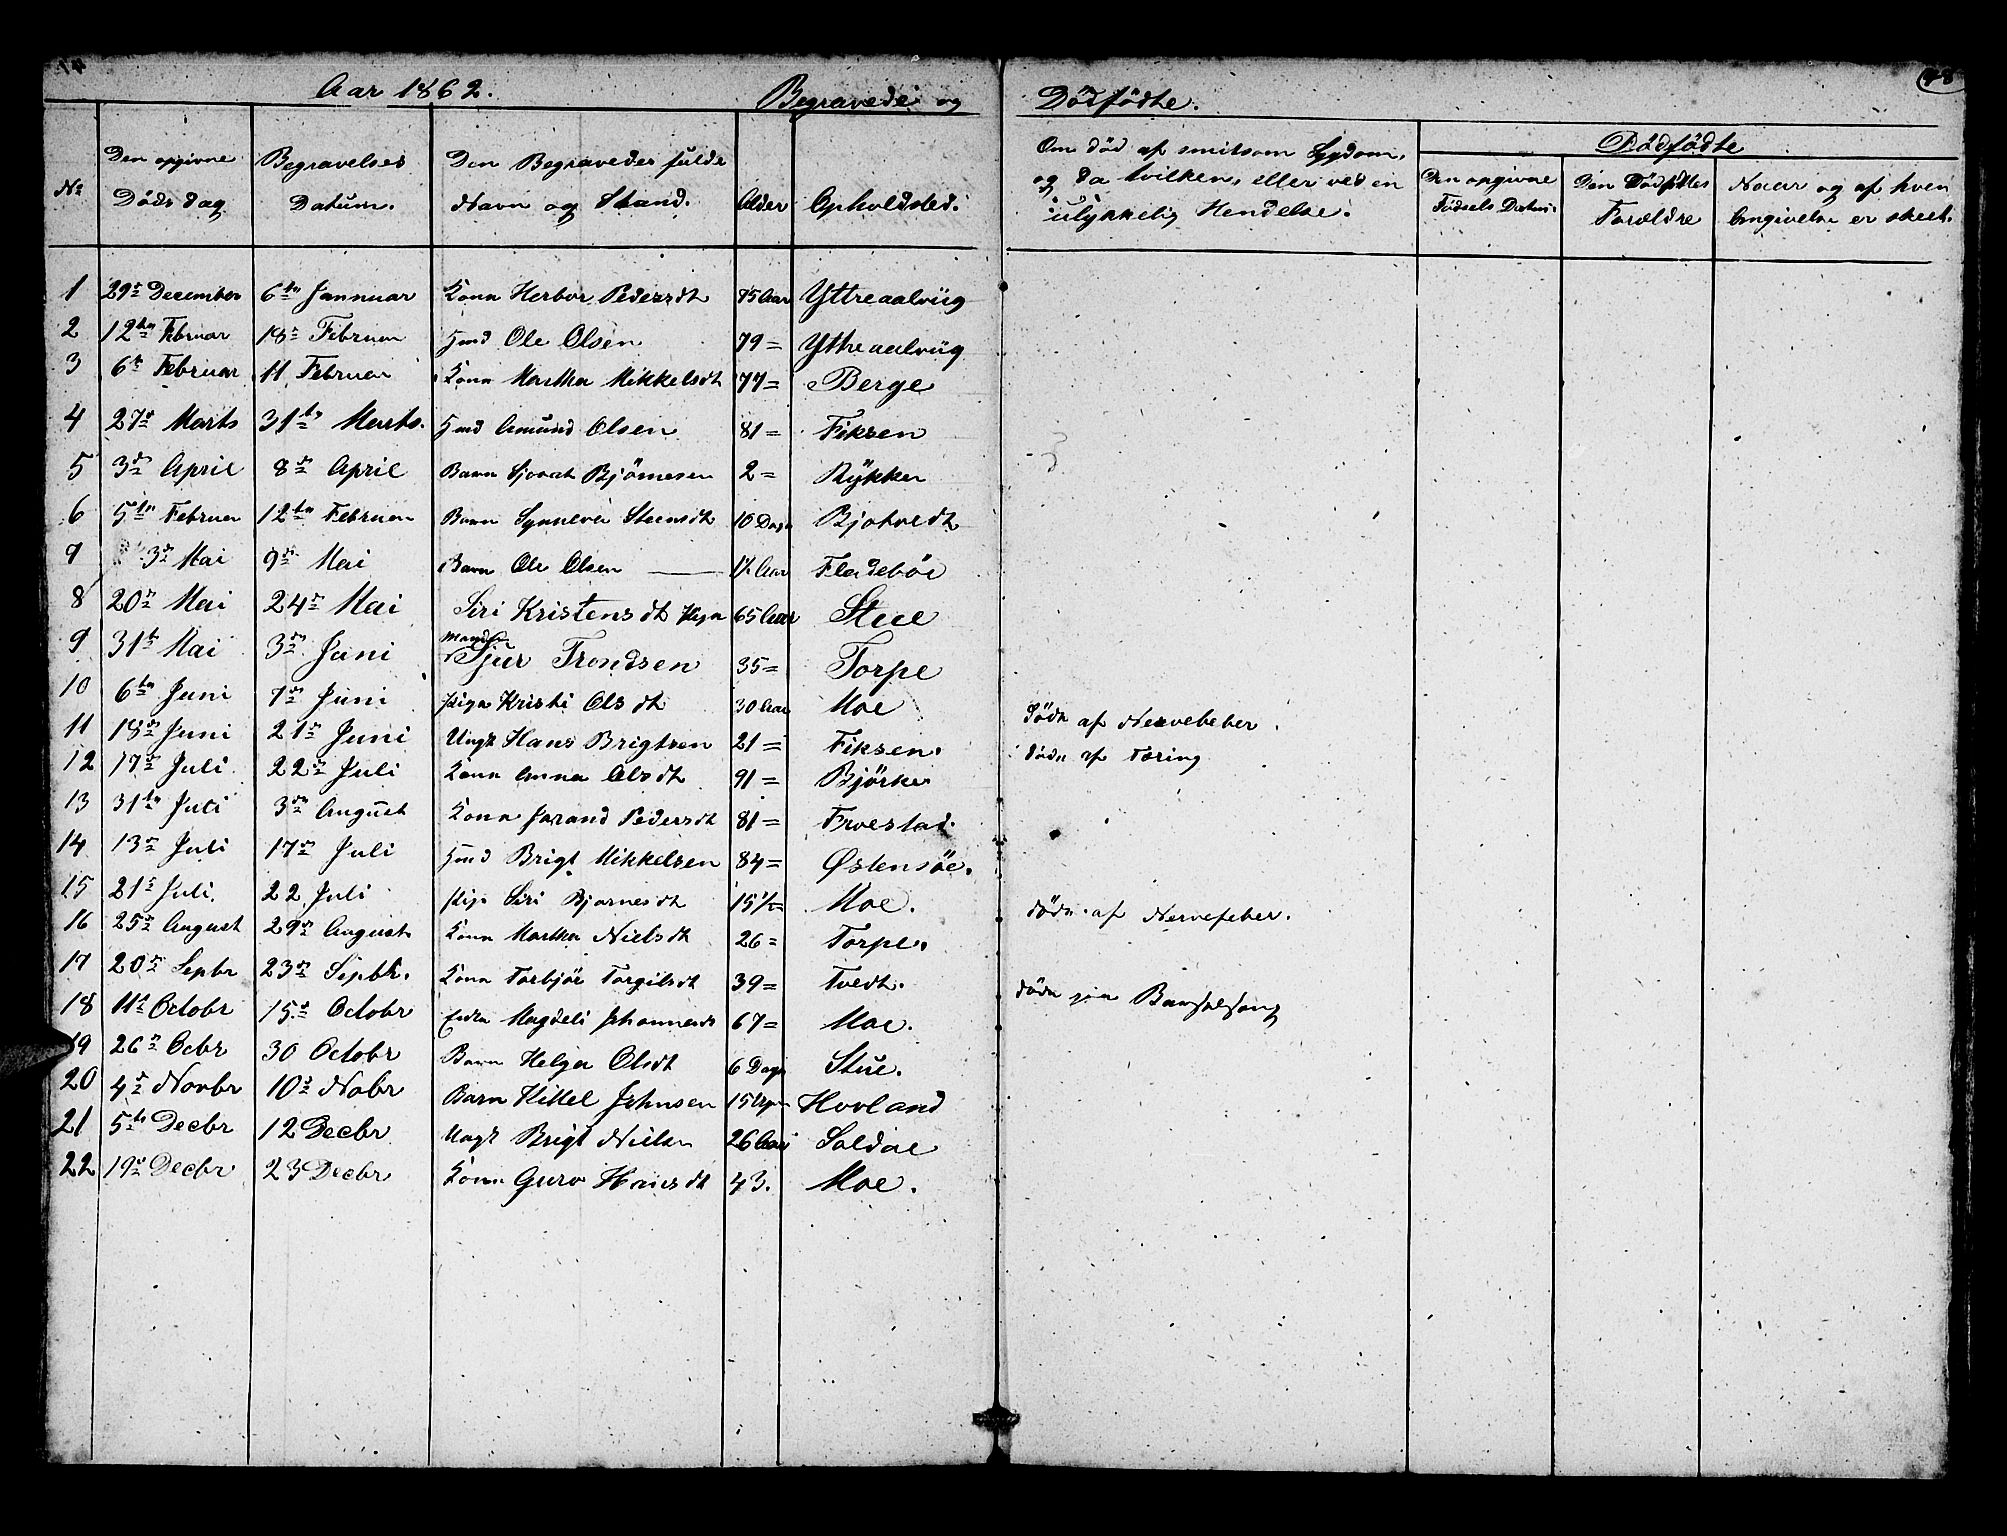 Aar 1862. Begravede og Dødfødte. 48
No Den opgivne Døds dag Begravelses Datum. Den Begravedes fulde Navn og Stand. Alder Opholdsted. Om død af smitsom Sygdom, og da hvilken, eller ved en ulykkelig Hendelse. Dødfødte
Den opgivne Fødsels Datum. Den Dødfødtes Forældre Naar og af hvem Angivelse er skeet.
1 29de December 6te Jannuar Kona Herbor Pedersdt 75 Aar Yttreaalvüg
2 12te Februar 18de Februar Hmd Ole Olsen 79 = Yttreaalvüg
3 6te Februar 11 Februar Kona Martha Mikkelsdt 77 = Berge
4 27de Marts 31te Marts. Hmd Amund Olsen 81 = Fiksen
5 3de April 8de April Barn Sjovat Bjömesen 2 = Rykken
6 5te Februar 12te Februar Barn Synneva Steensdt 10 Dage Bjotvedt
7 3de Mai 9de Mai Barn Ole Olsen 1½ Aar Fladebøe
8 20de Mai 24de Mai Siri Kristensdt Pige 65 Aar Stue
9 31te Mai 3de Juni Manden Sjur Trondsen 35 = Torpe
10 6te Juni 7de Juni Piga Kristi Olsdt 30 Aar Moe døde af Nervefeber.
11 18de Juni 21de Juni Ungk Hans Brigtsen 21 = Fiksen. døde af Tæring
12 17de Juli 22de Juli Kona Anna Olsdt 91 = Björke
13 31te Juli 3de August Kona Jorand Pedersdt 81 = Froestad.
14 13de Juli 17de Juli Hmd Brigt Mikkelsen 84 = Østensöe.
15 21de Juli. 22 Juli Pige Siri Bjørnesdt 15½ = Moe. døde af Nervefeber.
16 25de August 29de August Kona Martha Nielsdt 26 = Torpe.
17 20de Sepbr 23de Sepbr. Kona Torbjör Torgilsdt 39 = Tvedt. døde paa Barselseng
18 11te Octobr 15de Octobr Enka Magdeli Johannesdt 67 = Moe.
19 26de Ocbr 30 Octobr Barn Helga Olsdt 6 Dage Stue.
20 4de Novbr 10de Nobr Barn Kittel Johnsen 15 Uger Hovland
21 5te Decbr 12 Decbr Ungk Brigt Nielsen 26 Aar Soldal
22 19de Decbr 23 Decbr Kona Guro Hansdt 43. Moe.